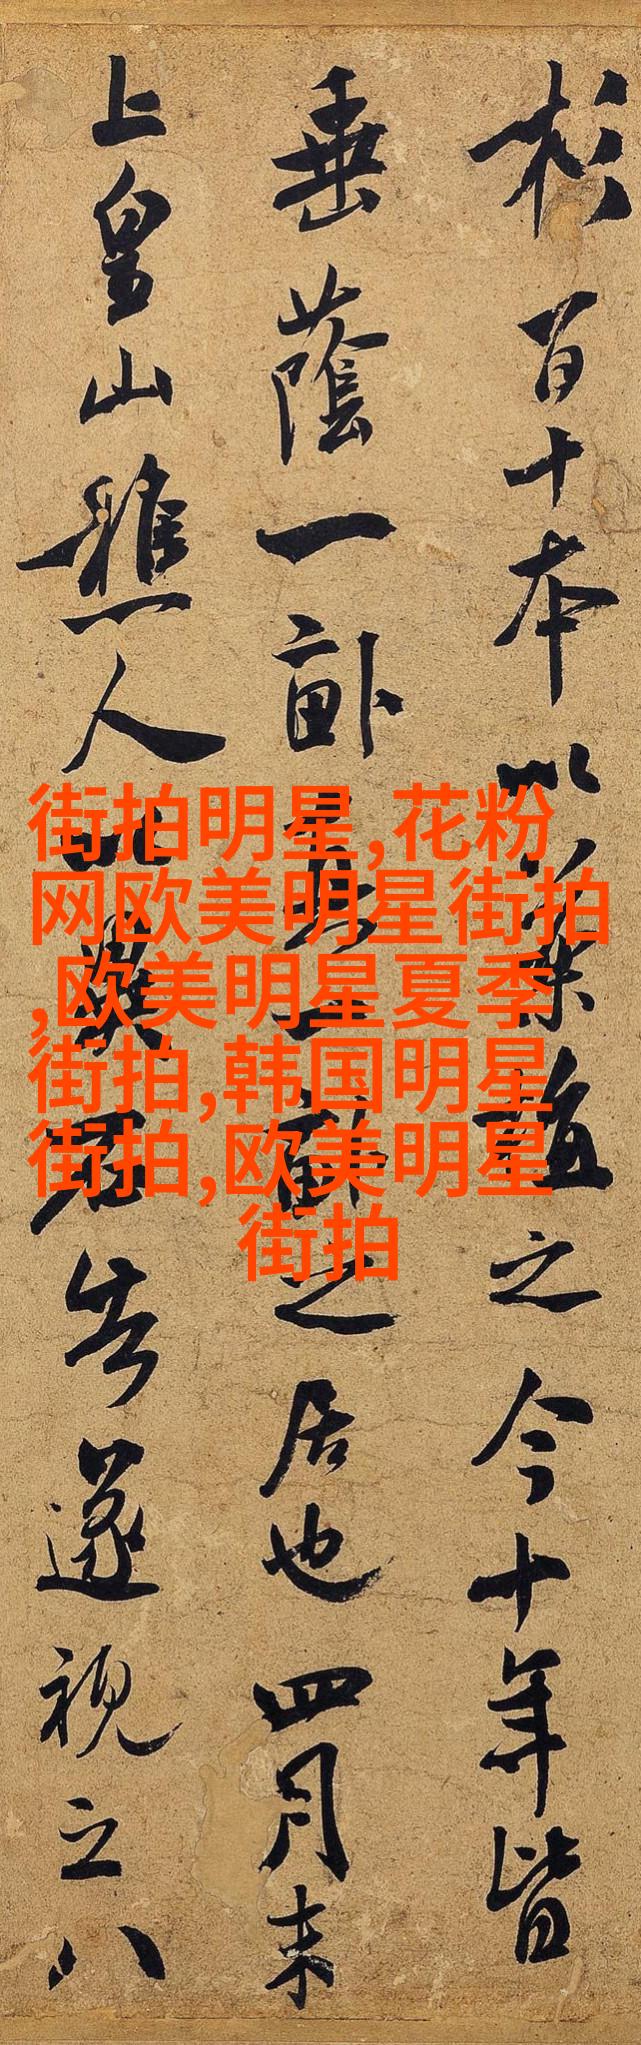 杉百十本以葉植之今十年皆
垂蔭一畝真一畝之居也四月末
上皇山樵人以異石告遂視之八
街拍明星,花粉
网欧美明星街拍
,欧美明星夏季
街拍,韩国明星
街拍,欧美明星
街拍